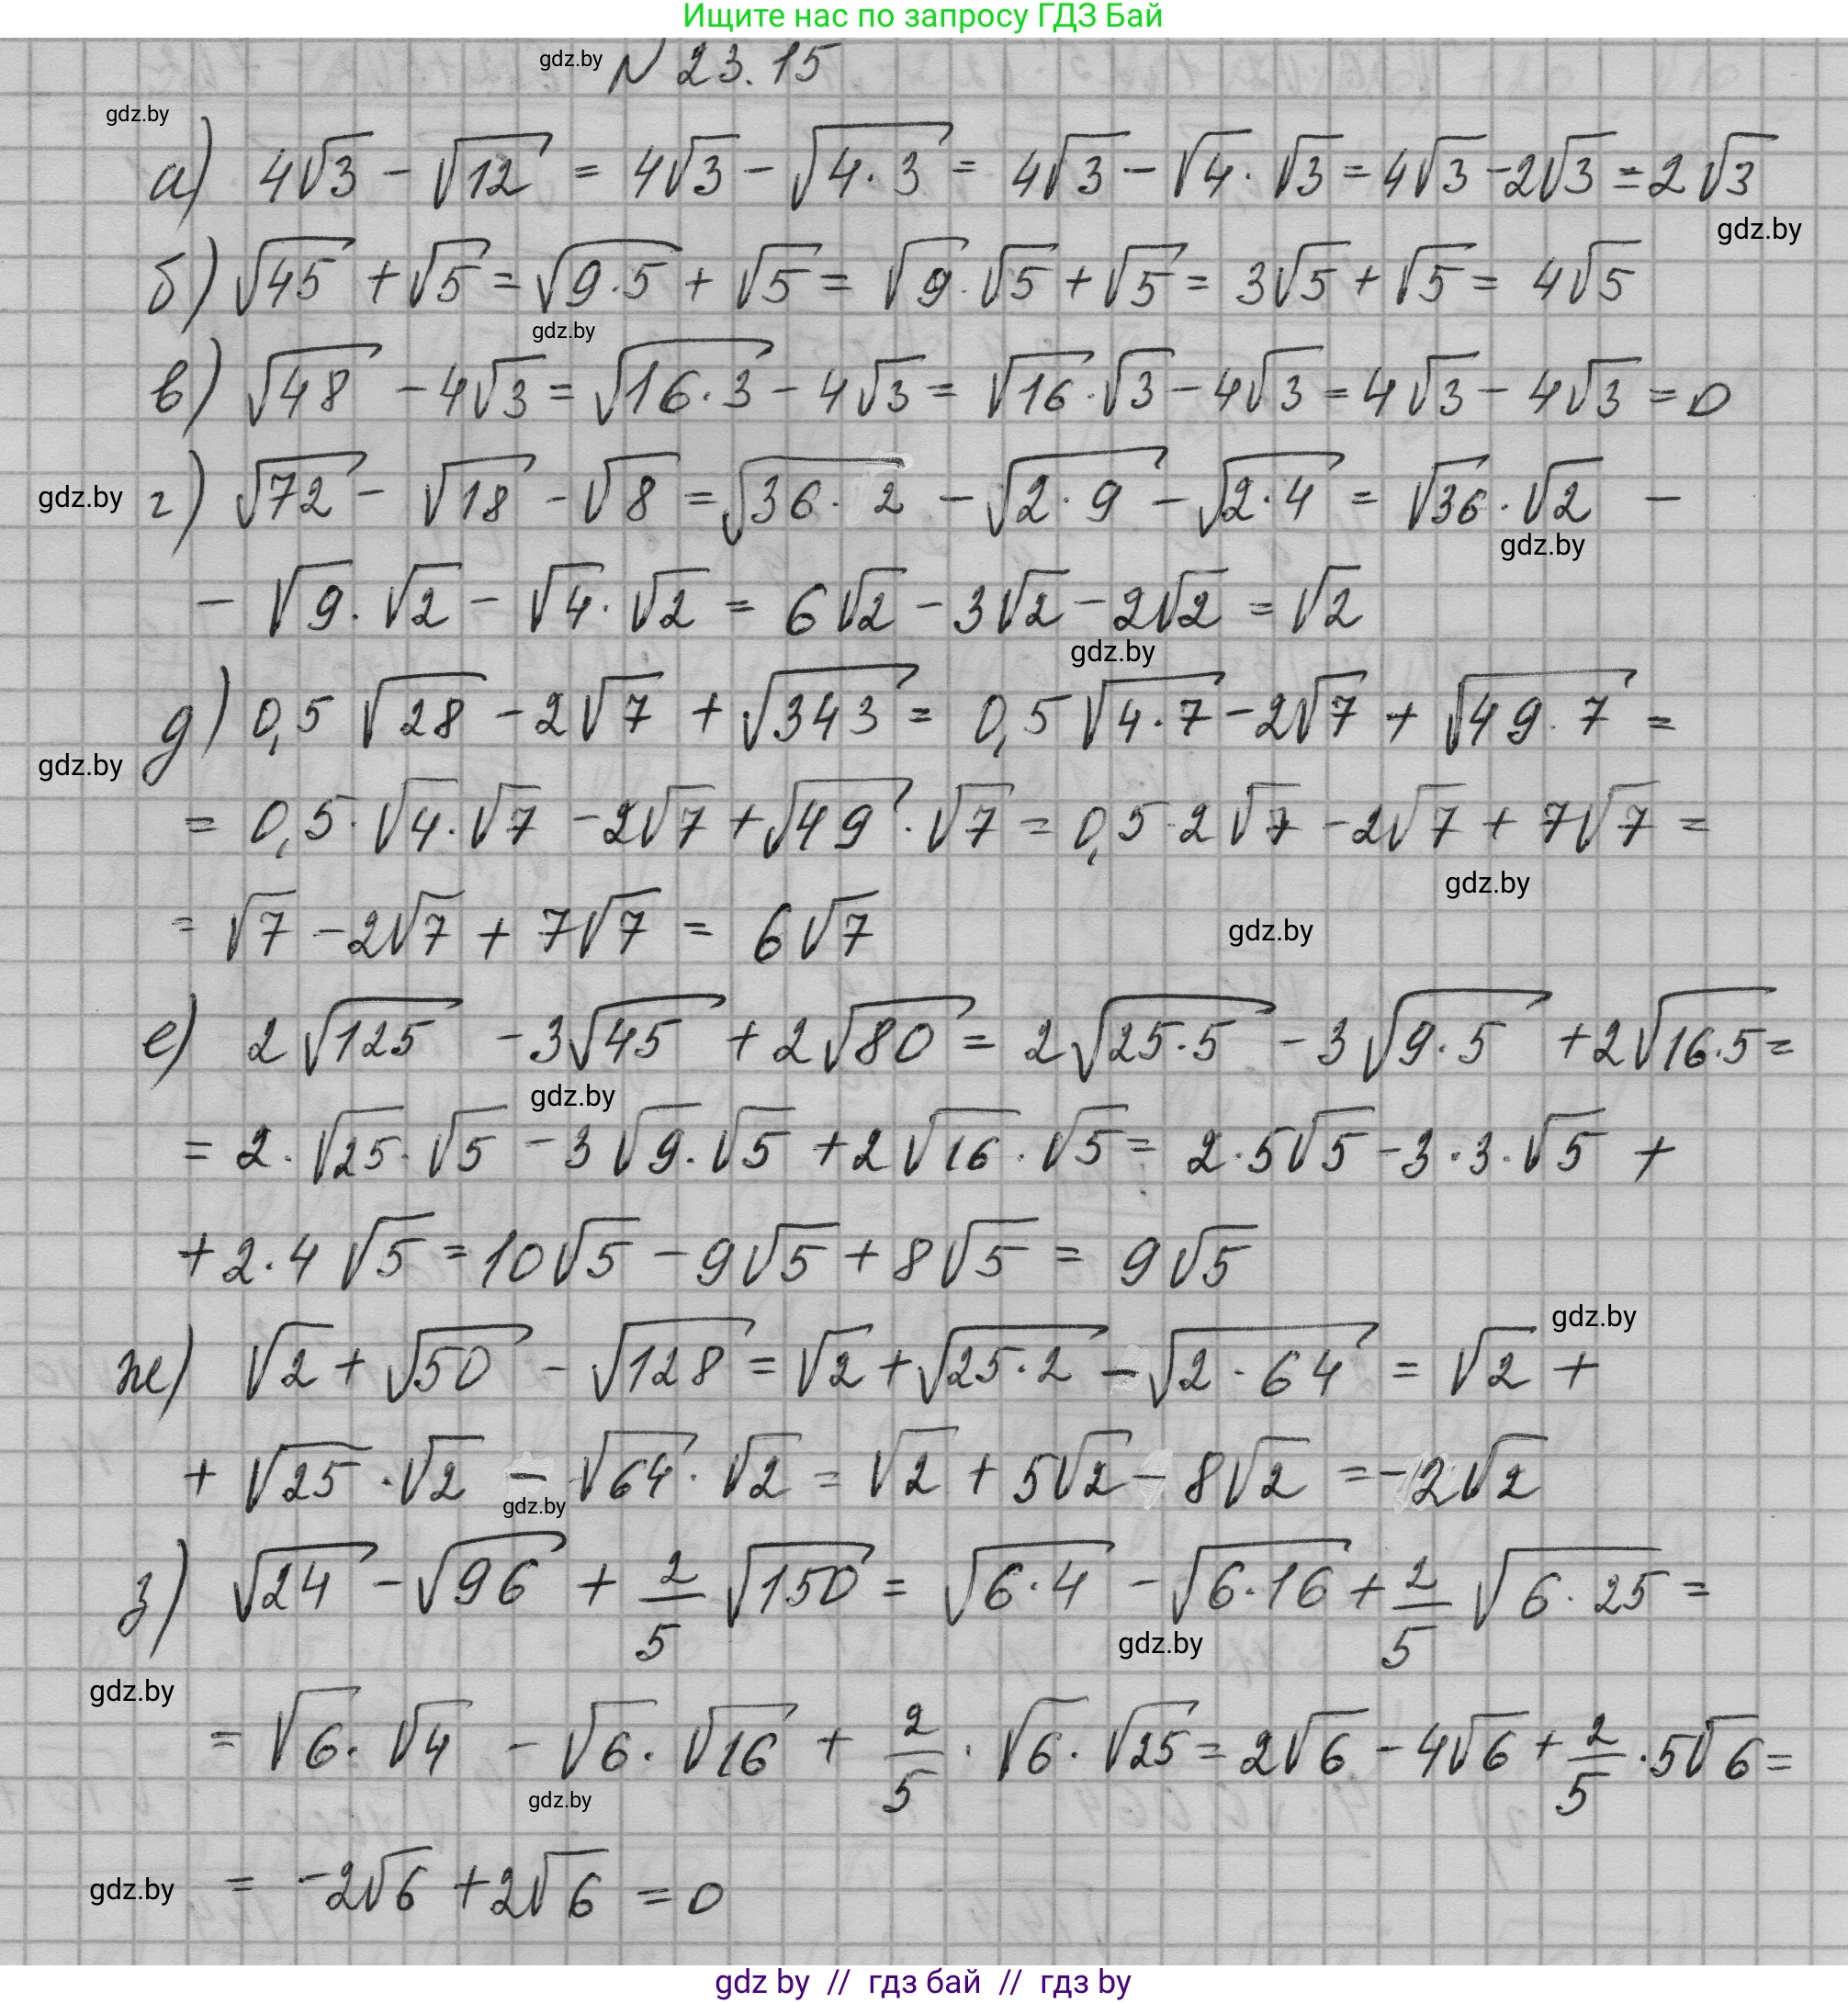 Ищите нас по запросу ГДЗ Бай
gdz.by N 23.15
gdz.by
а) 4√3 - √12 = 4√3 - √4·3 = 4√3 - √4·√3 = 4√3 - 2√3 = 2√3
gdz.by
б) √45 + √5 = √9·5 + √5 = √9·√5 + √5 = 3√5 + √5 = 4√5
gdz.by
в) √48 - 4√3 = √16·3 - 4√3 = √16·√3 - 4√3 = 4√3 - 4√3 = 0
gdz.by г) √72 - √18 - √8 = √36·2 - √2·9 - √2·4 = √36·√2 -
gdz.by
- √9·√2 - √4·√2 = 6√2 - 3√2 - 2√2 = √2
gdz.by
д) 0,5√28 - 2√7 + √343 = 0,5√4·7 - 2√7 + √49·7 =
gdz.by
= 0,5·√4·√7 - 2√7 + √49·√7 = 0,5·2√7 - 2√7 + 7√7 =
gdz.by
= √7 - 2√7 + 7√7 = 6√7 gdz.by
е) 2√125 - 3√45 + 2√80 = 2√25·5 - 3√9·5 + 2√16·5 =
gdz.by
= 2·√25·√5 - 3√9·√5 + 2√16·√5 = 2·5√5 - 3·3·√5 +
+ 2·4√5 = 10√5 - 9√5 + 8√5 = 9√5
gdz.by
ж) √2 + √50 - √128 = √2 + √25·2 - √2·64 = √2 +
+ √25·√2 - √64·√2 = √2 + 5√2 - 8√2 = -2√2
gdz.by
з) √24 - √96 + 2/5 √150 = √6·4 - √6·16 + 2/5 √6·25 =
gdz.by
gdz.by
= √6·√4 - √6·√16 + 2/5·√6·√25 = 2√6 - 4√6 + 2/5·5√6 =
gdz.by
gdz.by = -2√6 + 2√6 = 0
gdz by // гдз бай // гдз by